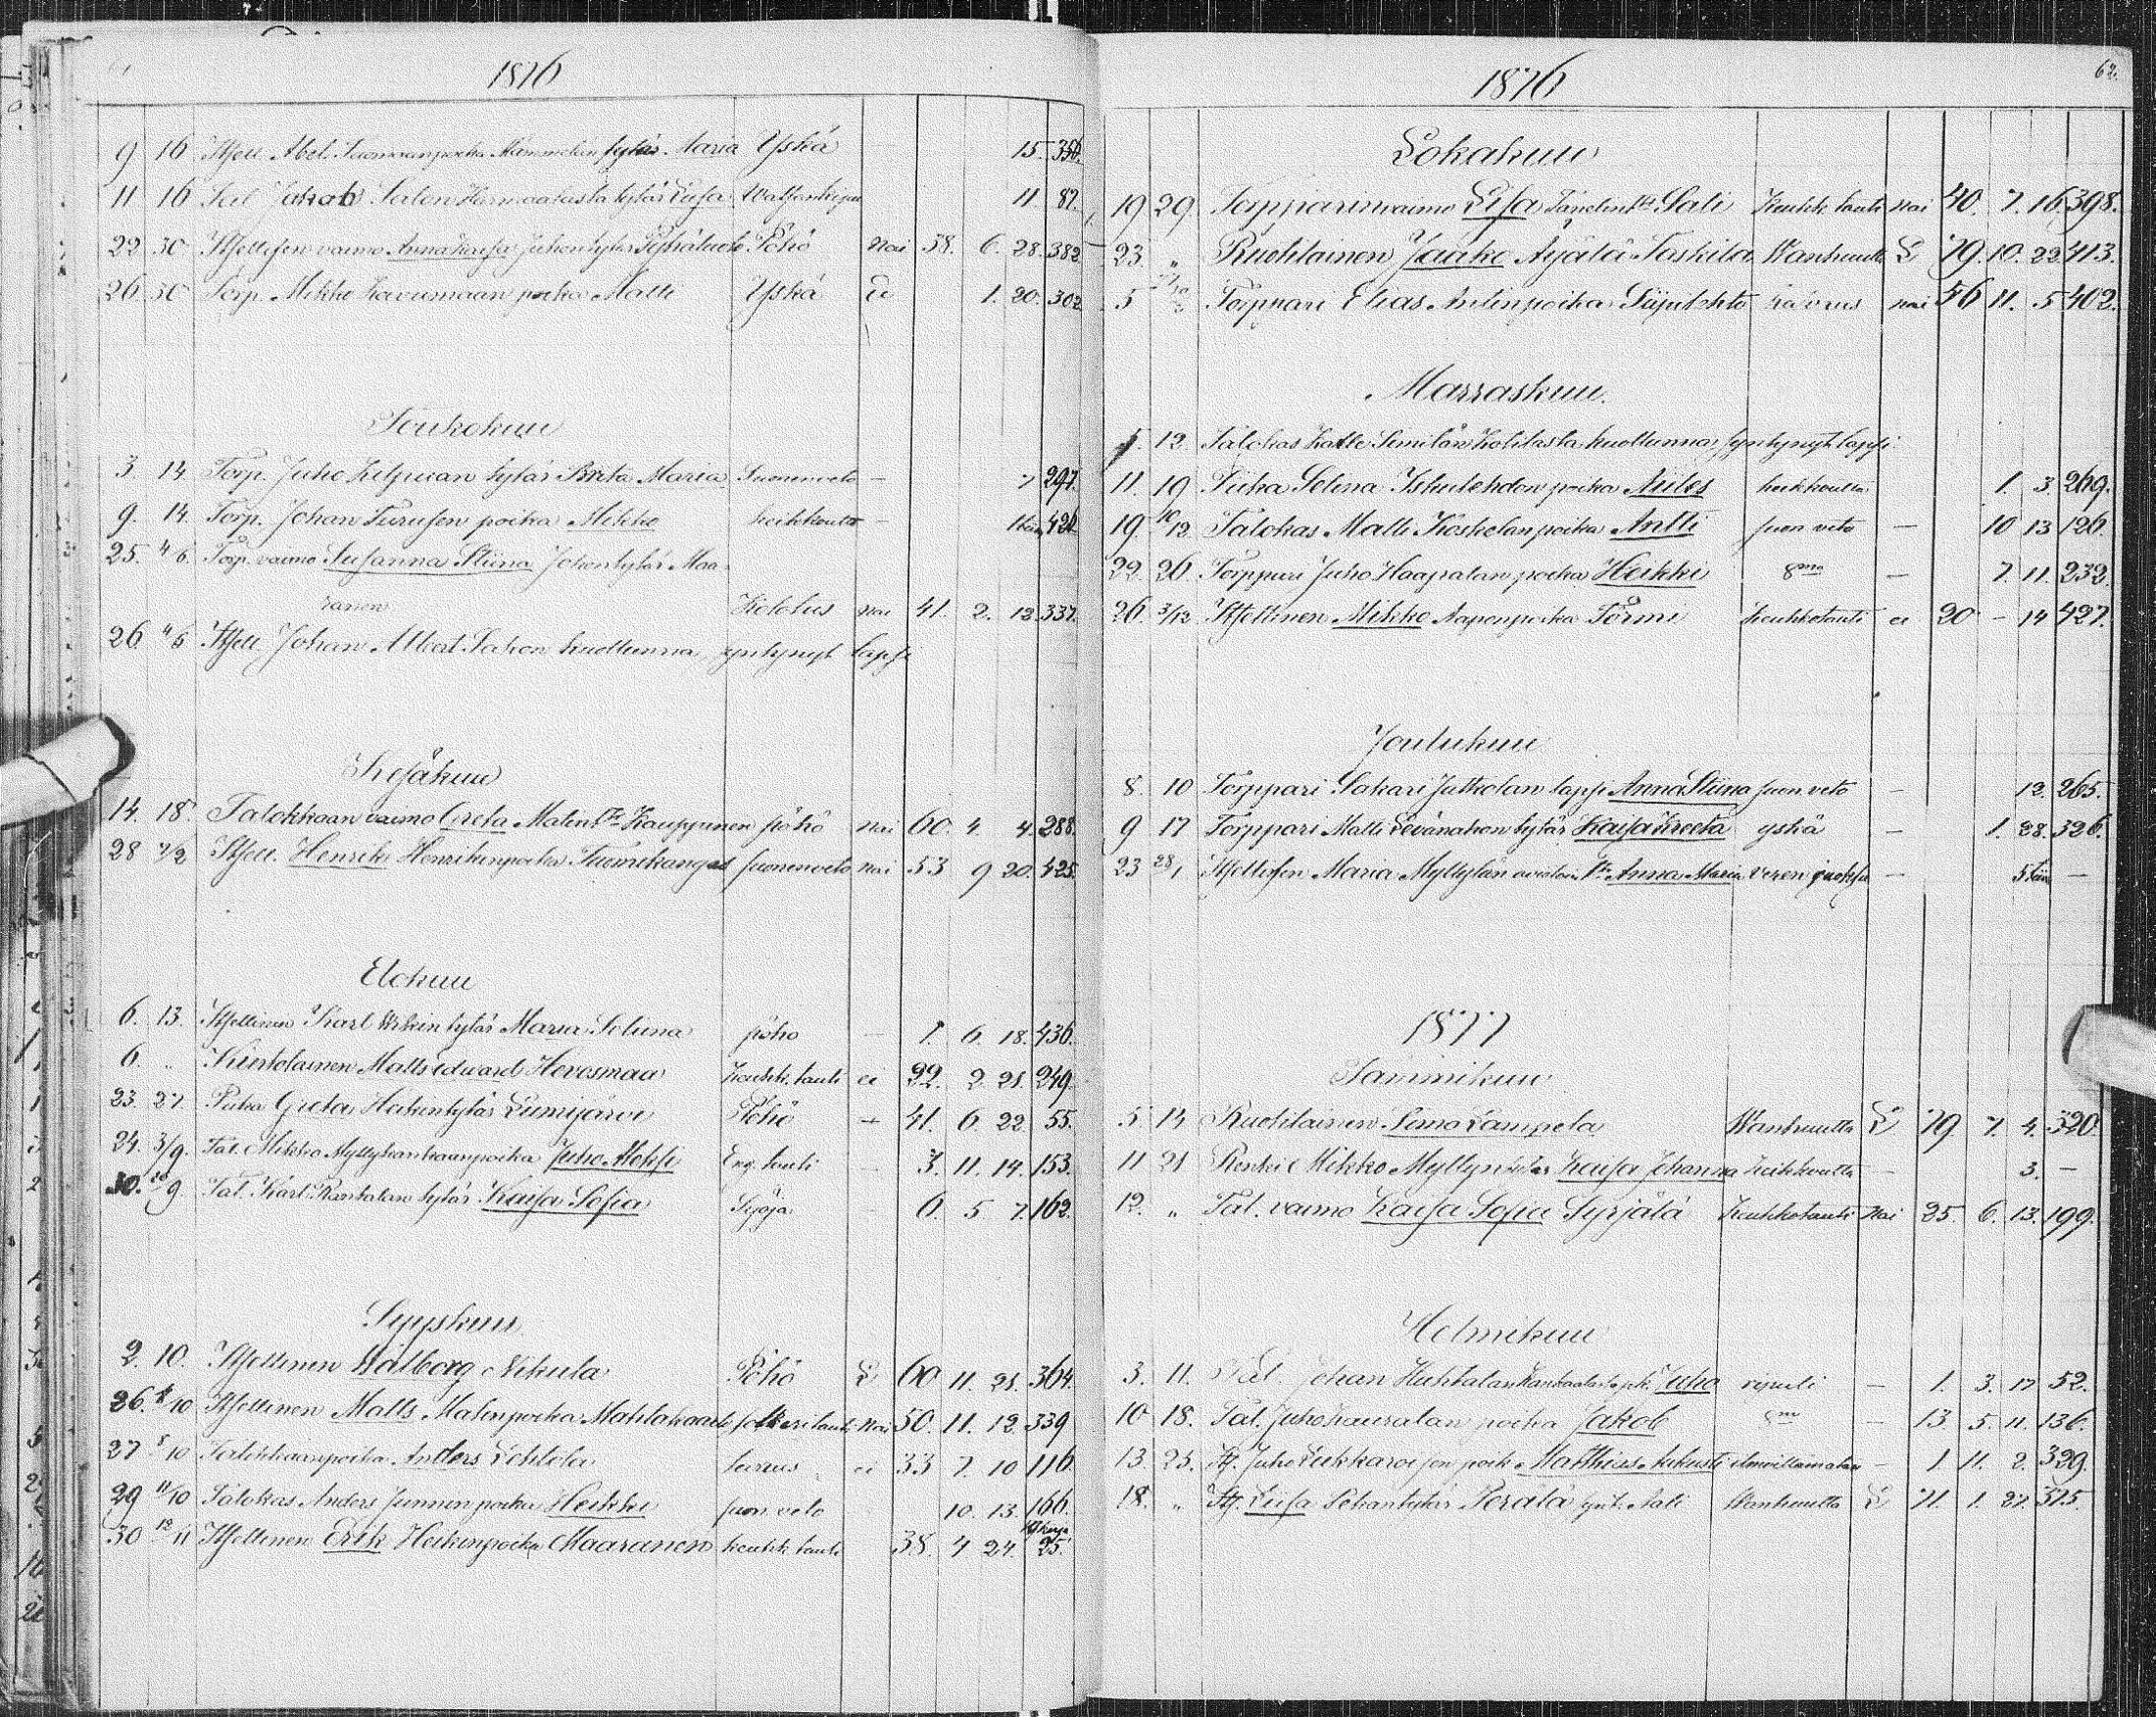 1876
9 16 Itsell Abel tytär Maria Yskä 15. 356.
11 16 Tal Jakob Salon tytär Liisa 11 87.
22 30 Itsellisen vaimo Anna Kaisa Juhontytär Pöhö nai 58. 6. 28. 382.
26. 30 Torp. Mikko poika Matti Yskä Ei 1. 20. 302
Toukokuu
3. 14. Torp. Juho tytär Brita Maria Suonenveto — 7 297.
9. 14. Torp. Johan Turusen poika Mikko heikkoutta — 426
25. 4/6. Torp. vaimo Susanna Stiina Johontytär Maa
ranen Kolotus nai 41. 2. 12. 337.
26 4/6 Itsell Johan Albert kuollunna syntynyt lapsi
Kesäkuu
14. 18. Talokkaan vaimo Greta Matint Kauppinen pöhö nai 60. 4. 4. 288.
28 2/2 Itsell. Henrik Henrikinpoika Tuomikangas suonenveto nai 53 9 20. 425.
Elokuu
6. 13. Itsellinen Karl tytär Maria Seliina pöhö — 1. 6. 18. 436.
6. „ Kustolainen Matts Edward Hevosmaa Keuhk. tauti ei 22. 2. 21. 249.
23. 27. Piika Greta Heikintytär Lumijärvi Pöhö — 41. 6. 22. 55.
24. 3/9. Tal. Mikko Myllykankaanpoika Juho Aleksi Eng. tauti — 3. 11. 14. 153.
30. 10/9. Tal. Karl Rantalan tytär Kaisa Sofia Syöjä 6. 5. 7. 162.
Syyskuu
2. 10. Itsellinen Walborg Nikula Pöhö L 60 11. 21. 364.
26. 1/10 Itsellinen Matts Matinpoika nai 50. 11. 12. 339
27 8/10 Talokkaanpoika Anders Lehtola ei 33 7. 10 116
29 11/10 Talokas Anders Junnin poika Heikki suon. veto 10. 13. 166.
30 12/11 Itsellinen Erik Heikinpoika Maaranen keuhk. tauti 38. 4 24. 25.
62.
1876
Lokakuu
19 29. Torpparin vaimo Liisa Tanelint Sali Keuhk. tauti nai 40. 7. 16. 398.
23. „ Ruotilainen Jaako Äijälä Taskila Wanhuutta L 79. 10. 22. 413.
5 Torppari Elias Antinpoika Siipilehto nai 56 11. 5. 402.
Marraskuu.
5. 12. Talokas Kalle kuollunna syntynyt lapsi
11. 19 Piika Selina poika Niiles heikkoutta 1. 3. 269.
19. 10/12 Talokas Matti Koskelan poika Antti suon veto — 10 13 126.
22. 26. Torppari Juho Haapalan poika Heikki — 7. 11. 232.
26. 3/12 Itsellinen Mikko Aaponpoika Törmi Keuhkotauti ei 20 — 14 427.
Joulukuu
8. 10 Torppari Sakari Jutkolan lapsi Anna Stiina suon veto — 12. 265.
9 17 Torppari Matti Levänahon tytär Kaisa Kreeta yskä — 1. 28. 326.
23 28/1 Itsellisen Maria Myllylän Anna Maria veren juoksu — 5 —
1877
Tammikuu
5. 14 Ruotilainen Simo Lampela Wanhuutta L 79 7. 4. 320.
11 21 Renki Mikko Myllyn tytär Kaisa Johanna heikkoutta — 3. —
12. „ Tal. vaimo Kaisa Sofia Syrjälä Keuhkotauti Nai 25. 6. 13. 199.
Helmikuu
3. 11. Tal. Johan Huhtalan Juho ripuli — 1. 3. 17 52.
10 18. Tal. Juho Kauralan poika Jakob — 13. 5. 11. 136.
13. 25. Its. Juho poik. Matthias Aukusti ilmoittamatta — 1. 11. 2. 329.
18. „ Its. Liisa Pekantytär Perälä synt. Aali Wanhuutta L 71. 1. 27. 315.